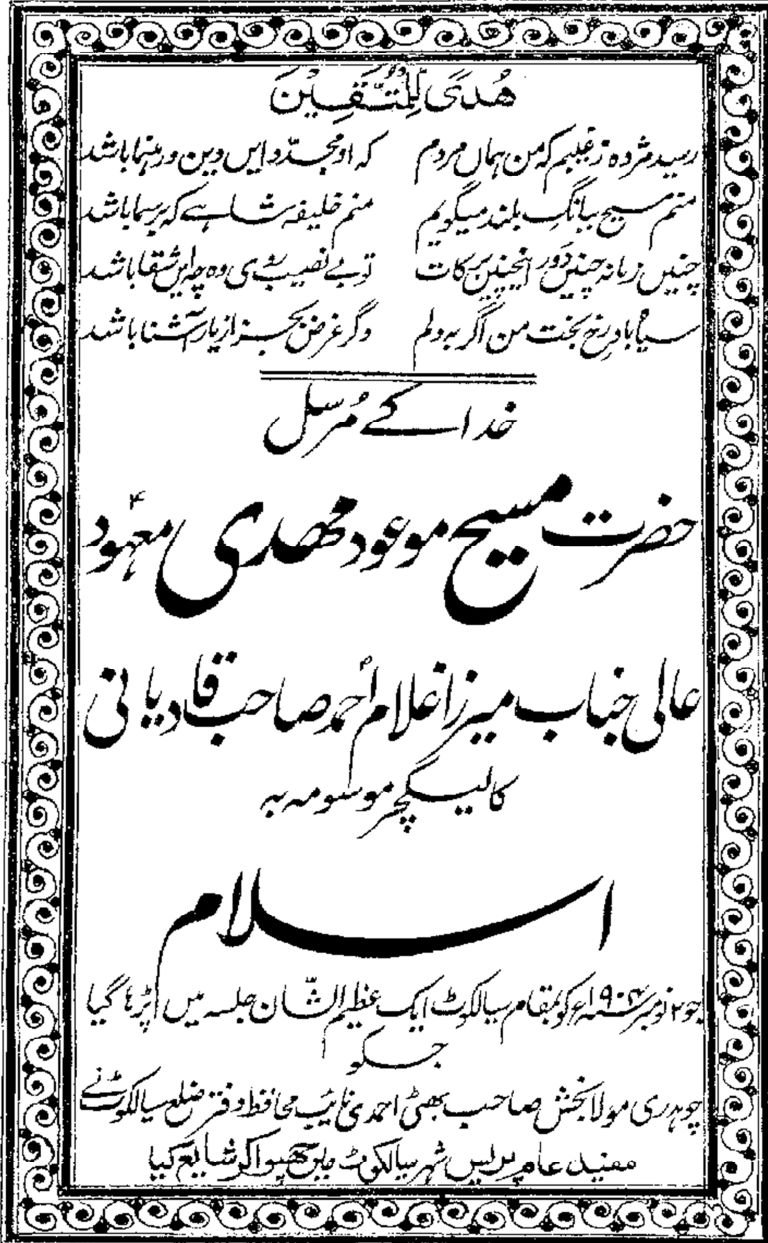 هُدًى لِّلْمُتَّقِيْنَ
رسید مژدہ زغیبم کہ من ہماں مردم کہ او مجدّد ایں دین و رہنما باشد
منم مسیح ببانگِ بلند میگویم منم خلیفہ شاہے کہ برسما باشد
چنیں زمانہ چنیں دَور اینچنیں برکات تو بے نصیب روی وہ چہ ایں شقا باشد
سیاہ باد رخِ بخت من اگر بہ دلم دگر غرض بجز از یارِ آشنا باشد
خدا کے مُرسل
حضرت مسیح موعود مھدی معہود ۴
عالی جناب میرزا غلام احمد صاحب قادیانی
کا لیکچر موسومہ بہ
اسلام
جو ۲ نومبر ۱۹۰۴ء کو بمقام سیالکوٹ ایک عظیم الشّان جلسہ میں پڑہا گیا
جسکو
چوہدری مولا بخش صاحب بھٹی احمدی نائیب محافظ دفتر ضلع سیالکوٹ نے
مفید عام پریس شہر سیالکوٹ میں چھپوا کر شایع کیا